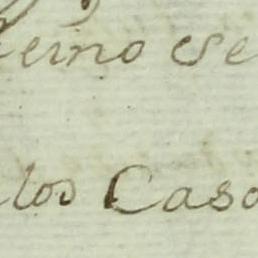 Reino se
los Caso